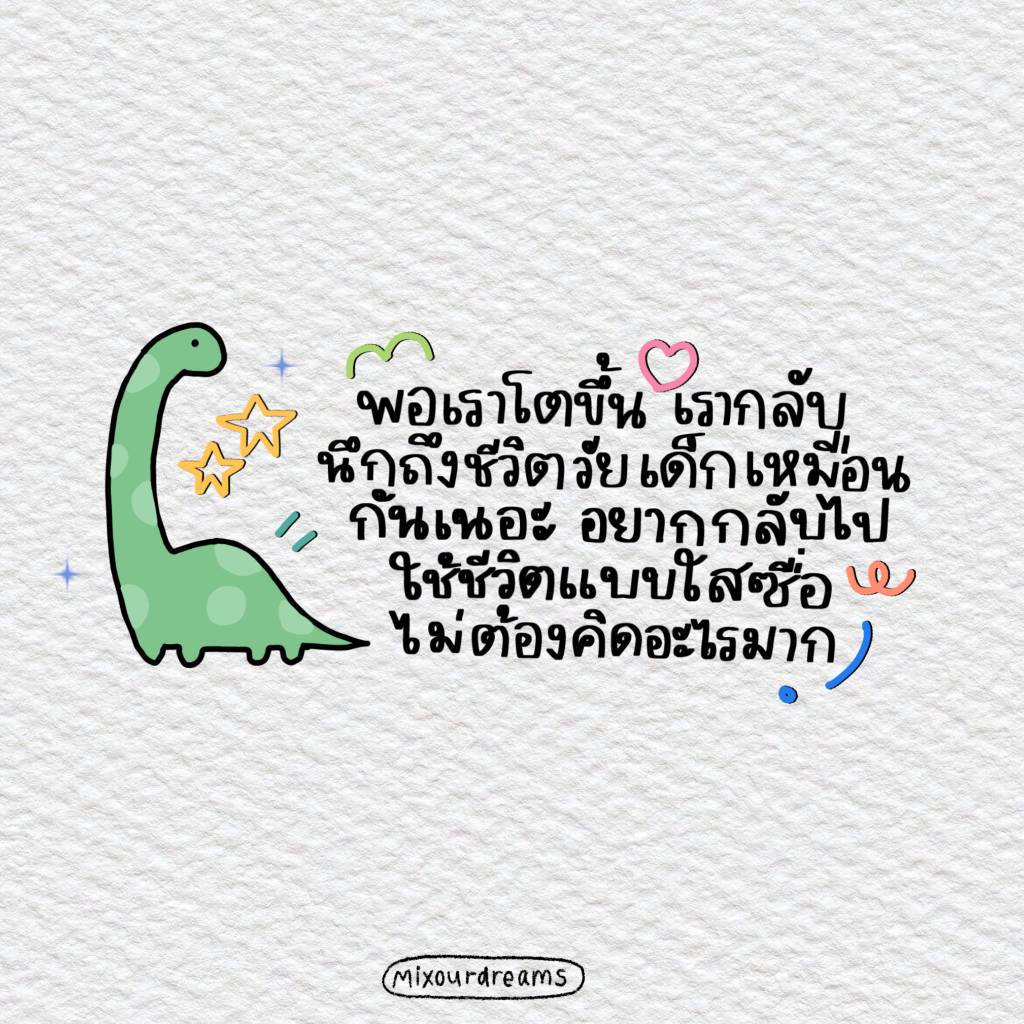 พอเราโตขึ้น เรากลับ
นึกถึงชีวิตวัยเด็กเหมือน
กันเนอะ อยากกลับไป
ใช้ชีวิตแบบใสซื่อ
ไม่ต้องคิดอะไรมาก
mixourdreams